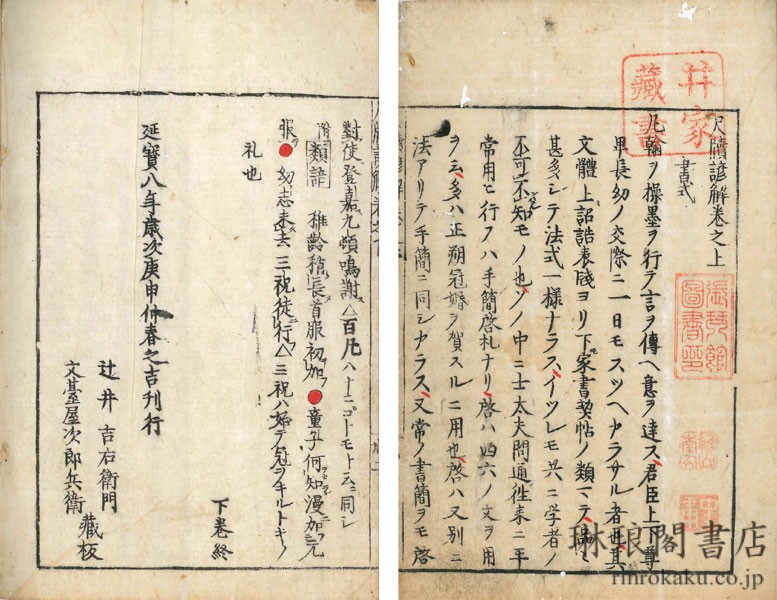 尺牘諺解巻之上
書式
凡翰ヲ操墨ヲ行テ言ヲ傳ヘ意ヲ達ス君臣上下尊
卑長幼ノ交際ニ一日モスツヘカラサル者也其
文體上詔誥表牋ヨリ下家書契帖ノ類マテ
甚多シテ法式一様ナラスイツレモ共ニ学者ノ
不可不知モノ也ソノ中ニ士太夫問通徃来ニ平
常用ヒ行フハ手簡啓札ナリ啓ハ四六ノ文ヲ用
ヲ云多ハ正朔冠婚ヲ賀スルニ用也啓ハ又別ニ
法アリテ手簡ニ同シカラス又常ノ書簡ヲモ啓
井家藏書
圖書
琳琅閣書店
rinrokaku.co.jp
對使登嘉九頓鳴謝△百凡ハ十二ゴトモト云ニ同シ
附類語 稚齢稍長首服初加●童子何知漫加元
服●幼志未去三祝徒行△三祝ハ始テ冠ヲキルトキノ
礼也
下巻終
延寶八年歳次庚申仲春之吉刊行
辻井吉右衛門
文臺屋次郎兵衛 藏板